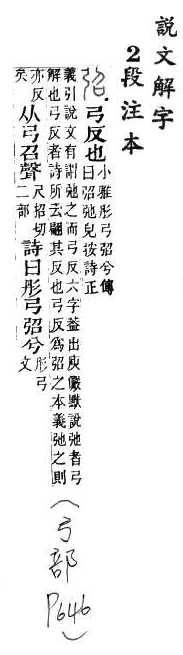 說文解字
2段注本
弨.弓反也 小雅彤弓弨兮傳
曰弨弛皃按詩正
義引說文有謂弛之而弓反六字蓋出庾儼默說弛者弓
解也弓反者詩所云翩其反也弓反爲弨之本義弛之則
亦反
矣 从弓召聲 尺招切
二部 詩曰彤弓弨兮 彤弓
文
(弓部 P646)